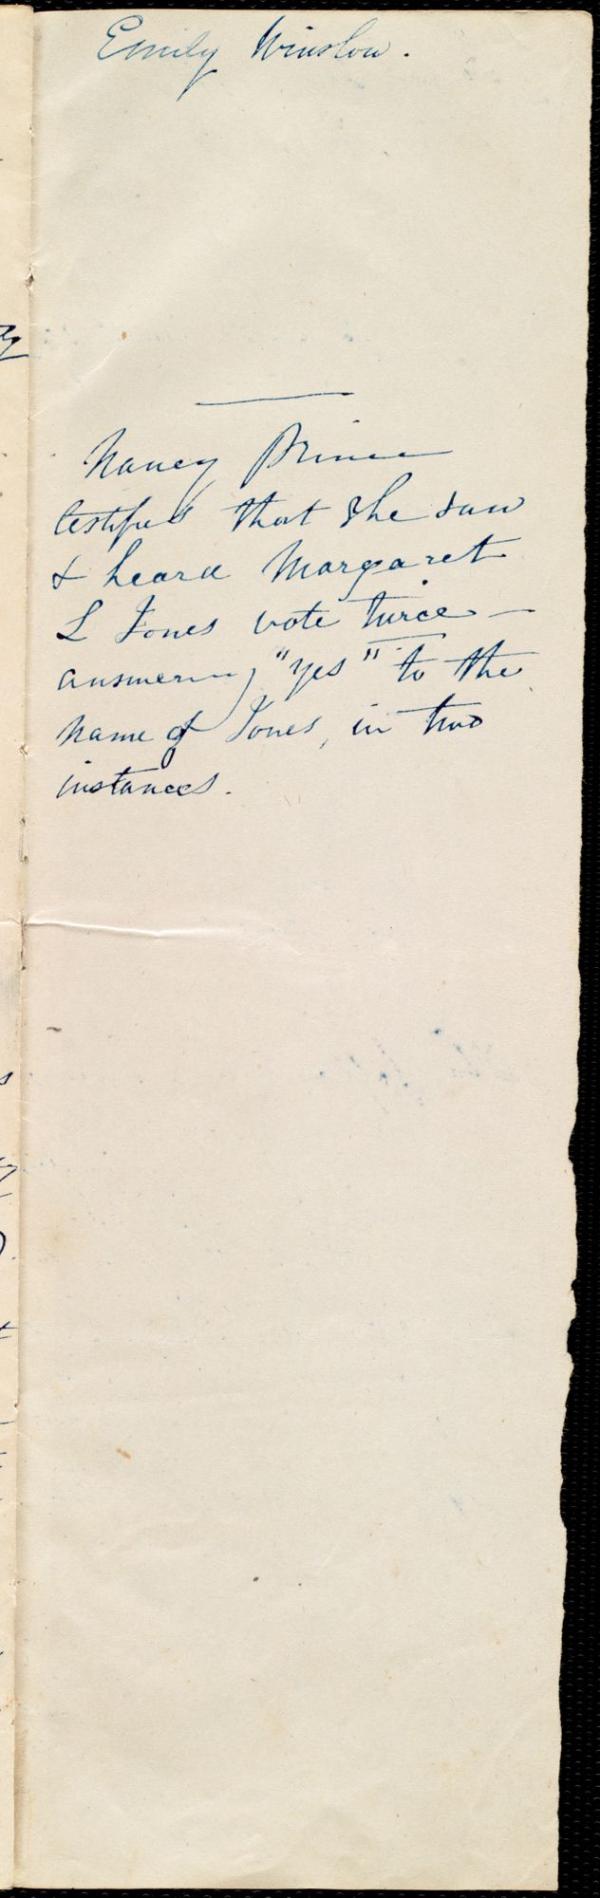 Emily Winslow.
Nancy Prince
testifies that she saw
& heard Margaret
L Jones vote twice —
answering "yes" to the
name of Jones, in two
instances.